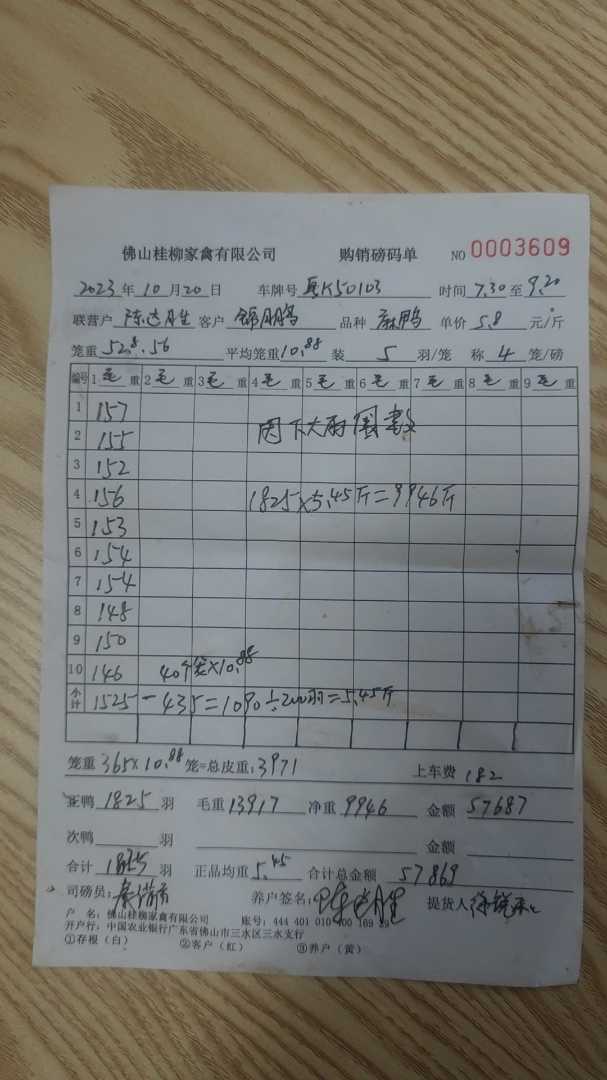 佛山桂柳家禽有限公司 购销磅码单 NO 0003609
2023年10月20日 车牌号 K50103 时间 7.30至9.20
联营户 客户 锦月鹏 品种 麻鸭 单价 5.8 元/斤
笼重 52.8.56 平均笼重 10.88 装 5 羽/笼 称 4 笼/磅
编号 1 毛重 2 毛重 3 毛重 4 毛重 5 毛重 6 毛重 7 毛重 8 毛重 9 毛重
1 157
因下大雨 数
2 155
3 152
4 156 1825×5.45斤=9946斤
5 153
6 154
7 154
8 148
9 150
10 146 40个笼×10.88
小计 1525-435=1090÷200羽=5.45斤
笼重 365×10.88 笼=总皮重:3971 上车费 182
正鸭 1825 羽 毛重 13917 净重 9946 金额 57687
次鸭 羽 金额
合计 1825 羽 正品均重 5.45 合计总金额 57869
司磅员: 养户签名: 提货人
户 名:佛山桂柳家禽有限公司 账号:444 401 010 400 169 89
开户行:中国农业银行广东省佛山市三水区三水支行
①存根(白) ②客户(红) ③养户(黄)